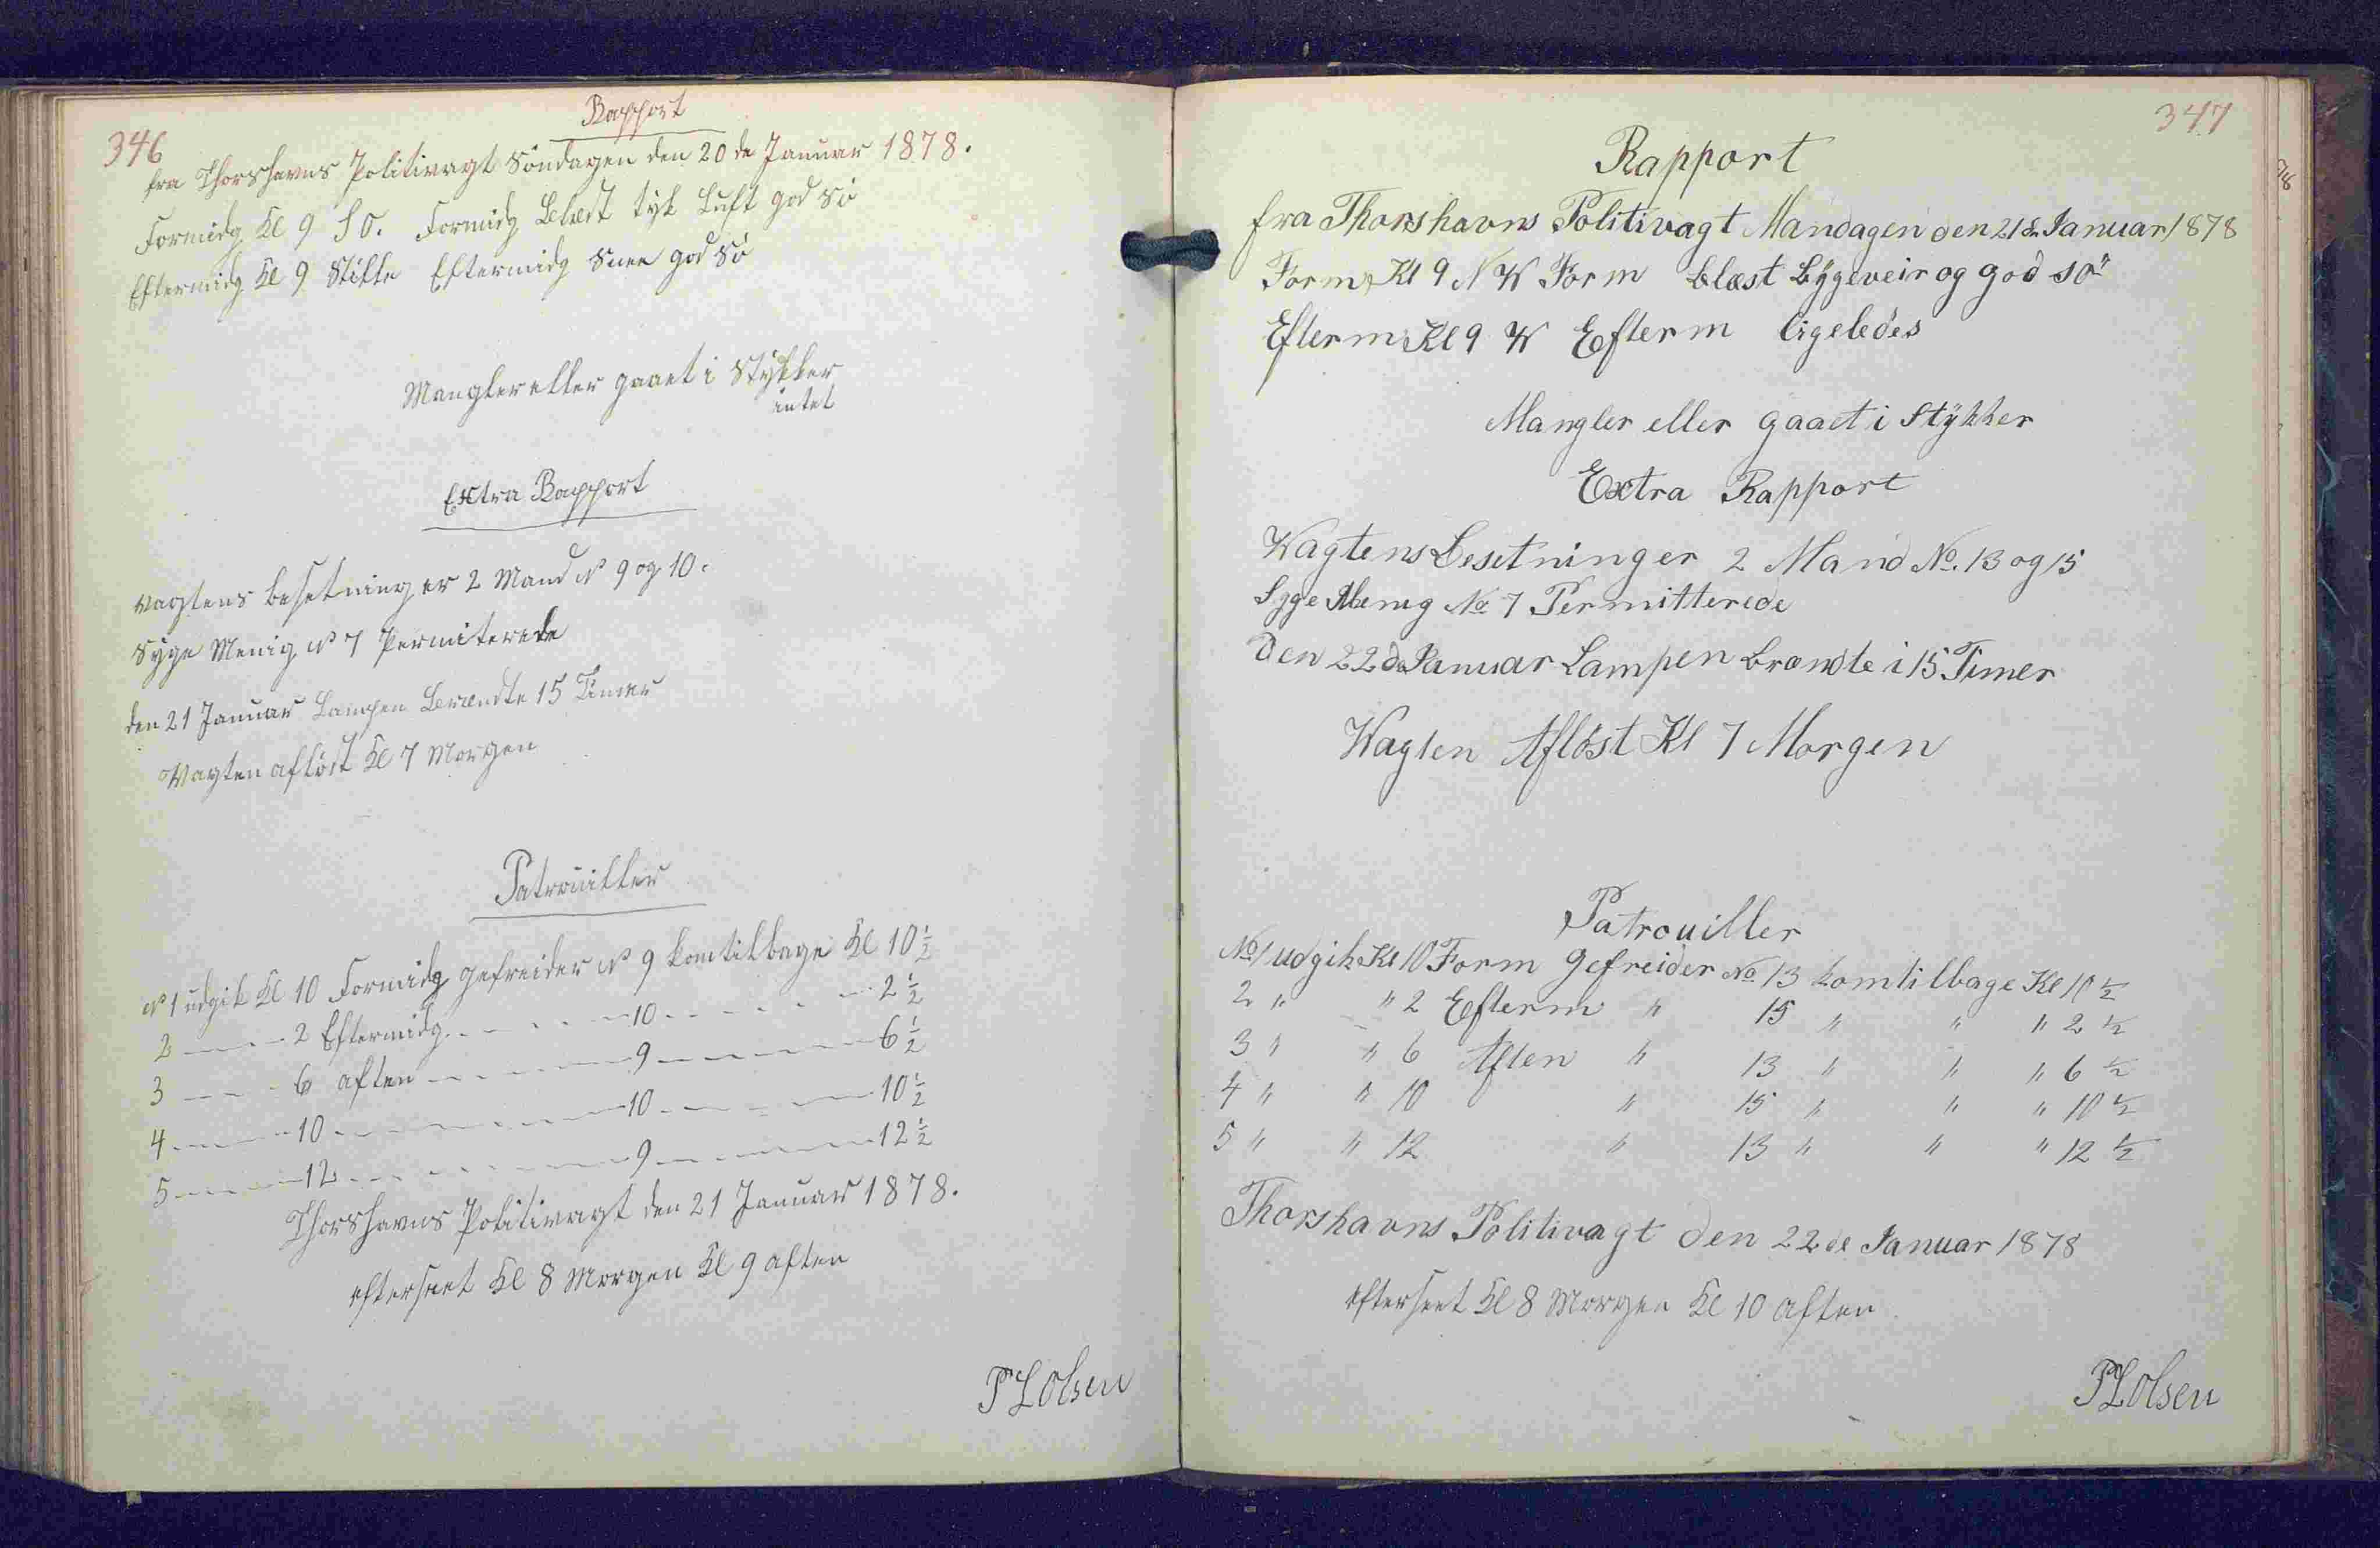 346
Rapport
fra Thorshavns Politivagt Söndagen den 20de Januar 1878.
Formidg Kl 9 SO. Formidg Blæst tyk Luft god Sö
Eftermidg Kl 9 Stille Eftermidg Snee god Sö
Mangler eller gaaet i Stÿkker
intet
Extra Rapport
Vagtens besetning er 2 Mand No 9 og 10.
Syge Menig No 7 Permiterede
den 21 Januar Lampen Brændte 15 Timer
Vagten aflöst Kl 7 Morgen
Patrouiller
No 1 udgik Kl 10 Formidg gefreider No 9 kom tilbage Kl 10 1/2
2 — — - 2 Eftermidg. - - - - - 10 - - - - - 2 1/2
3 — - - 6 aften — - - — 9 — — — 6 1/2
4 — — - 10 - — — — — 10 - — - — 10 1/2
5 — - — 12 - - - - - — 9 — - — — 12 1/2
Thorshavns Politivagt den 21 Januar 1878.
efterseet Kl 8 Morgen Kl 9 aften
P L Olsen
347
Rapport
fra Thorshavns Politivagt Mandagen den 21de Januar 1878
Form Kl 9 N W Form blæst Bÿgeveir og god sö
Efterm Kl 9 W Efterm ligeledes
Mangler eller gaaet i Stÿkker
Extra Rapport
Wagtens Besetning er 2 Mand No. 13 og 15
Syge Menig No 7 Permitterede
Den 22de Januar Lampen brændte i 15 Timer
Wagten Aflöst Kl 7 Morgen
Patrouiller
No 1 udgik Kl 10 Form Gefreider No 13 kom tilbage Kl 10 1/2
2 " " 2 Efterm " 15 " " " 2 1/2
3 " " 6 Aften " 13 " " " 6 1/2
4 " " 10 " 15 " " " 10 1/2
5 " " 12 " 13 " " " 12 1/2
Thorshavns Politivagt den 22de Januar 1878
efterseet Kl 8 Morgen Kl 10 aften
PL Olsen